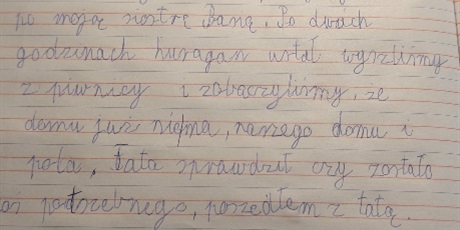 po moją siostrę Baną. Po dwach
godzinach huragan ustał wyszlismy
z piwnicy i zobaczylismy, ze
domu już niema, naszego domu i
pola, Tata sprawdził czy zostało
oś potrzebnego, poszedłem z tatą.